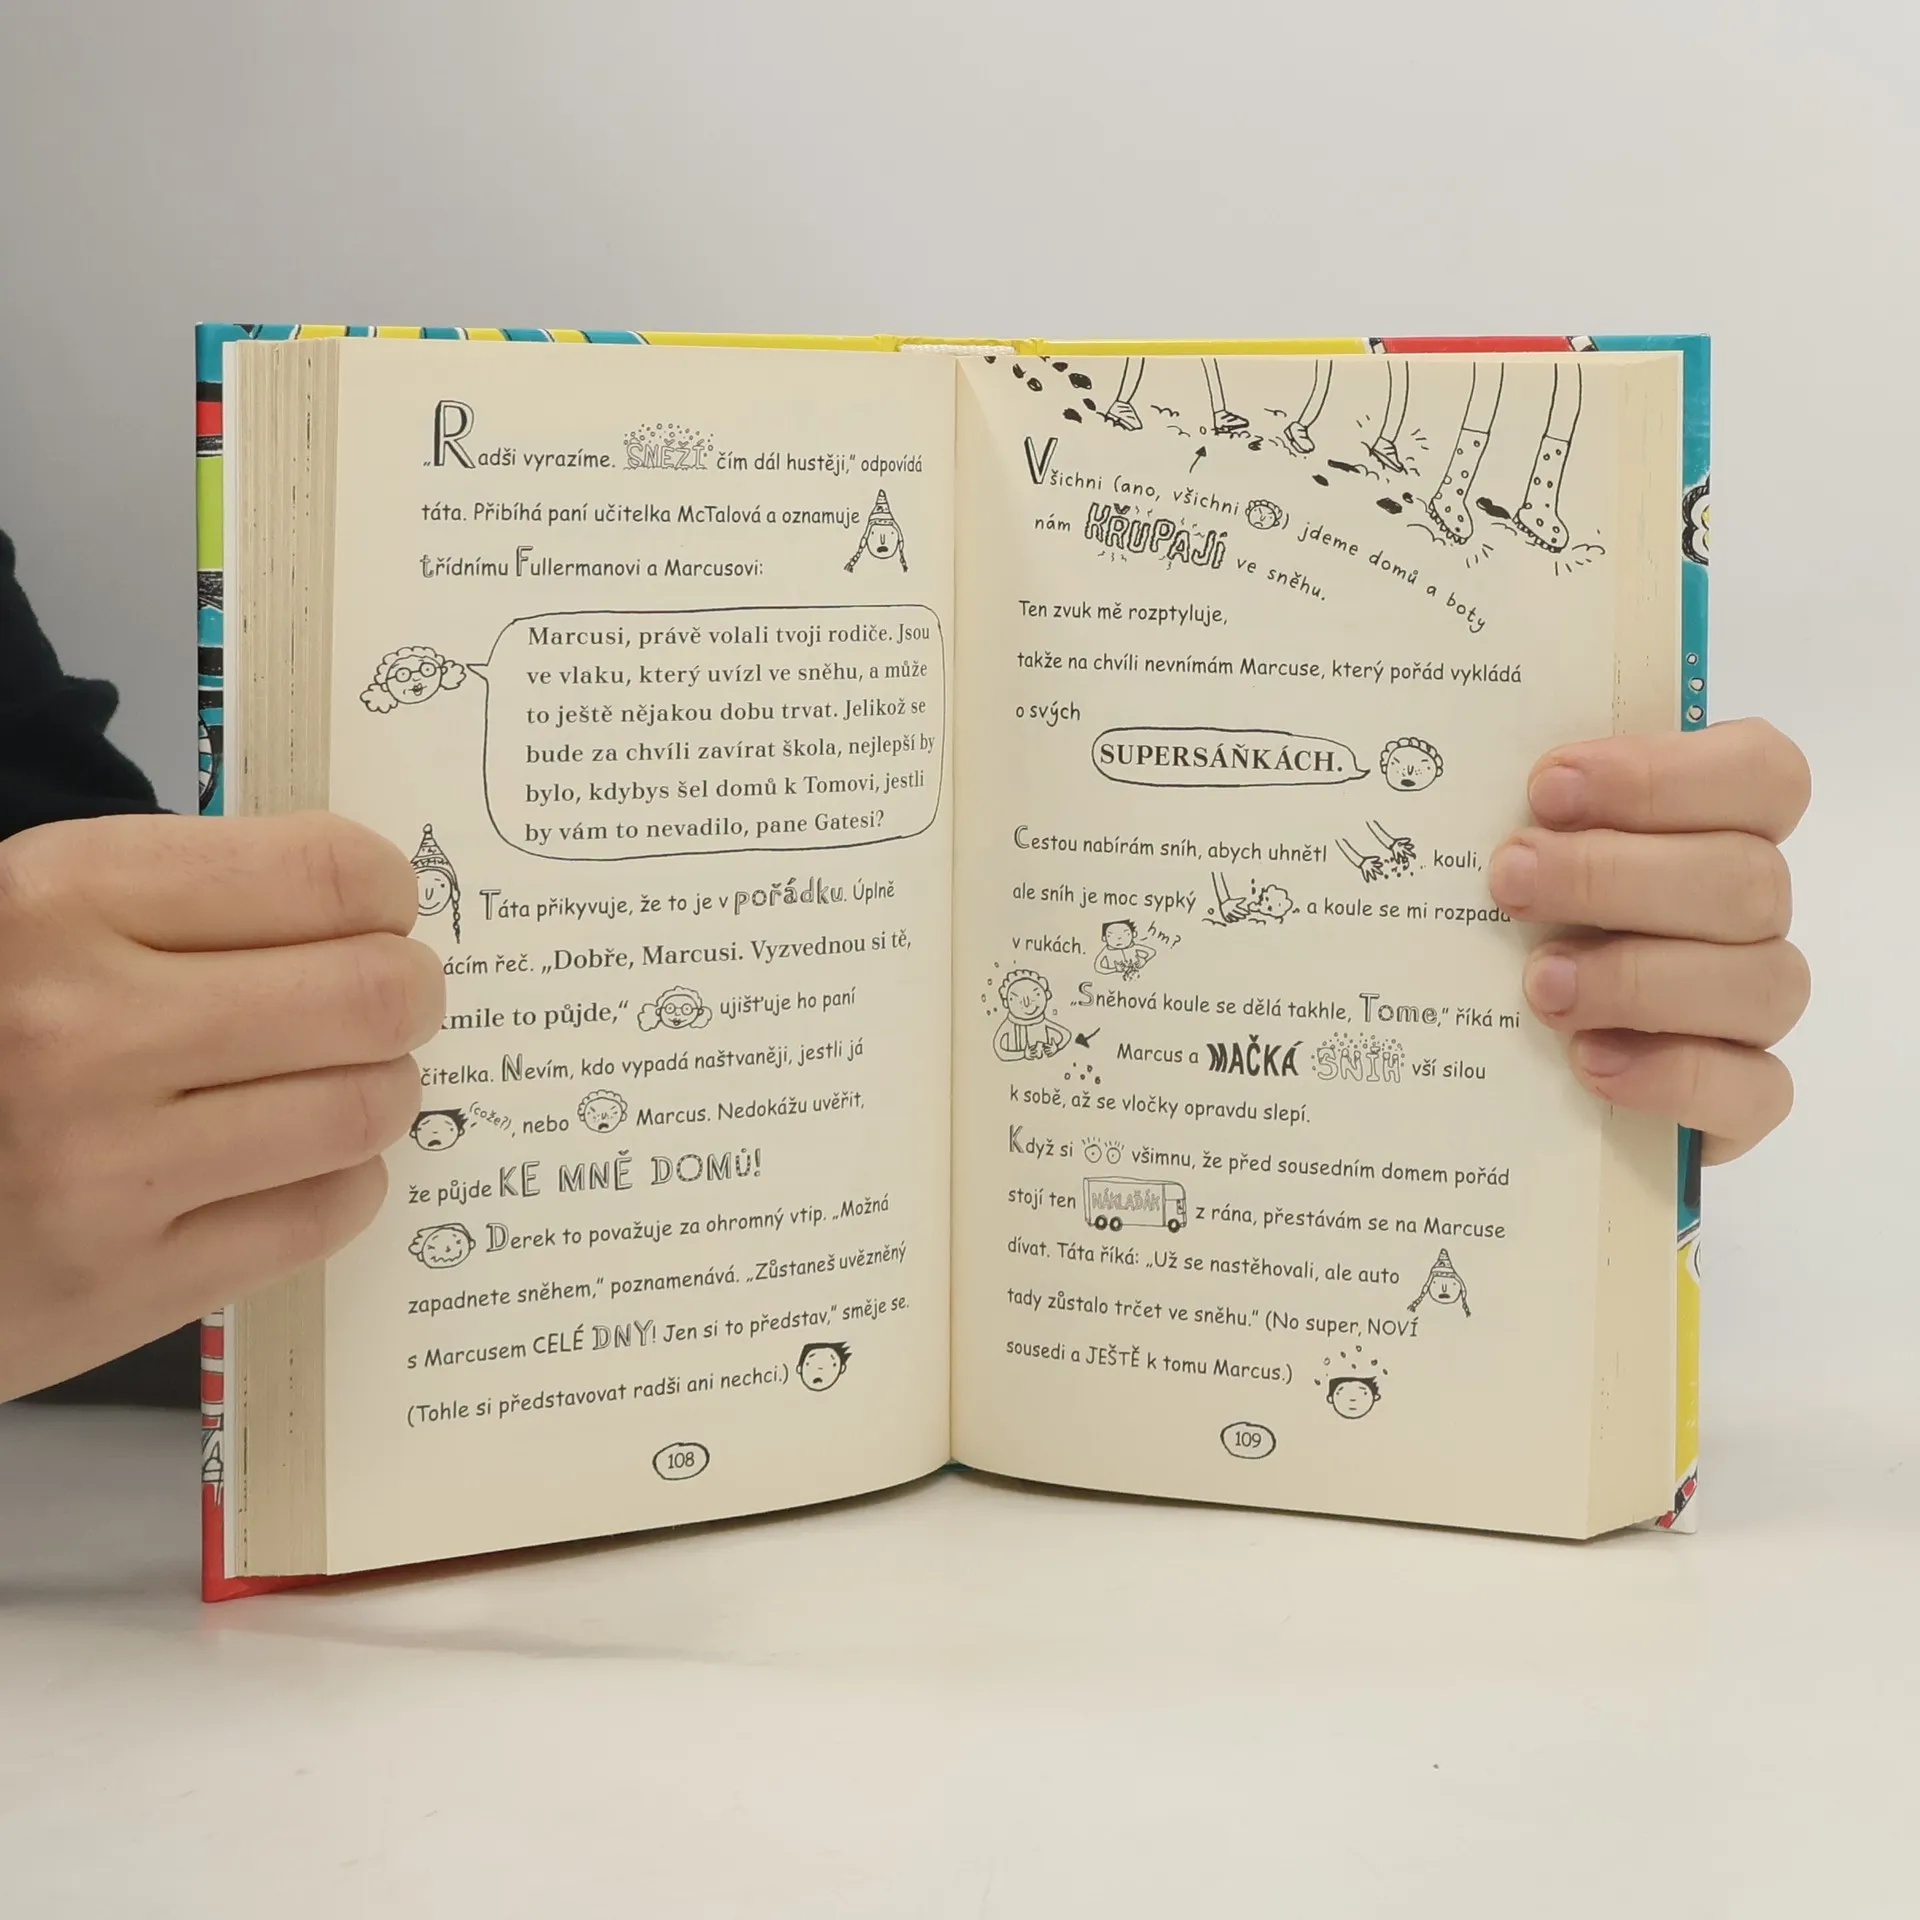 „Radši vyrazíme. SNĚŽÍ čím dál hustěji,“ odpovídá
táta. Přibíhá paní učitelka McTalová a oznamuje
třídnímu Fullermanovi a Marcusovi:
Marcusi, právě volali tvoji rodiče. Jsou
ve vlaku, který uvízl ve sněhu, a může
to ještě nějakou dobu trvat. Jelikož se
bude za chvíli zavírat škola, nejlepší by
bylo, kdybys šel domů k Tomovi, jestli
by vám to nevadilo, pane Gatesi?
Táta přikyvuje, že to je v pořádku. Úplně
řeč. „Dobře, Marcusi. Vyzvednou si tě,
to půjde,“ ujišťuje ho paní
Nevím, kdo vypadá naštvaněji, jestli já
(cože?), nebo Marcus. Nedokážu uvěřit,
že půjde KE MNĚ DOMŮ!
Derek to považuje za ohromný vtip. „Možná
zapadnete sněhem,“ poznamenává. „Zůstaneš uvězněný
s Marcusem CELÉ DNY! Jen si to představ,“ směje se.
(Tohle si představovat radši ani nechci.)
108
Všichni (ano, všichni) jdeme domů a boty
nám KŘUPAJÍ ve sněhu.
Ten zvuk mě rozptyluje,
takže na chvíli nevnímám Marcuse, který pořád vykládá
o svých
SUPERSÁŇKÁCH.
Cestou nabírám sníh, abych uhnětl kouli,
ale sníh je moc sypký a koule se mi rozpadá
v rukách. hm?
„Sněhová koule se dělá takhle, Tome,“ říká mi
Marcus a MAČKÁ SNÍH vší silou
k sobě, až se vločky opravdu slepí.
Když si všimnu, že před sousedním domem pořád
stojí ten NÁKLAĎÁK z rána, přestávám se na Marcuse
dívat. Táta říká: „Už se nastěhovali, ale auto
tady zůstalo trčet ve sněhu.“ (No super, NOVÍ
sousedi a JEŠTĚ k tomu Marcus.)
109